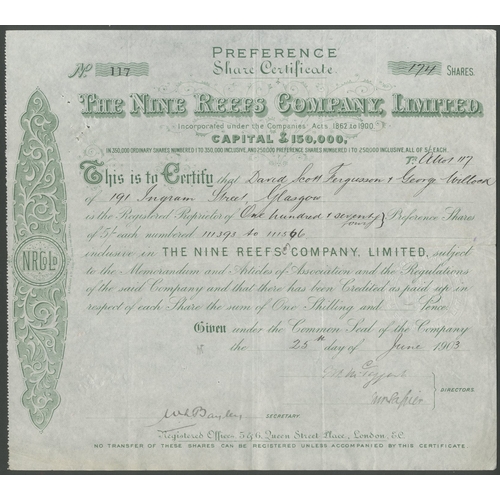 PREFERENCE
Share Certificate.
No. 117
174 SHARES
THE NINE REEFS COMPANY, LIMITED.
Incorporated under the Companies' Acts, 1862 to 1900.
CAPITAL £150,000,
IN 350,000 ORDINARY SHARES NUMBERED 1 TO 350,000 INCLUSIVE, AND 250,000 PREFERENCE SHARES NUMBERED 1 TO 250,000 INCLUSIVE, ALL OF 5/- EACH.
This is to Certify that David Scott Fergusson & George Willock
of 191 Ingram Street, Glasgow
is the Registered Proprietor of One hundred & seventy four Preference Shares
of 5/- each numbered 111393 to 111566
inclusive in THE NINE REEFS COMPANY, LIMITED, subject
to the Memorandum and Articles of Association and the Regulations
of the said Company and that there has been Credited as paid up in
respect of each Share the sum of One Shilling and Pence.
Given under the Common Seal of the Company
the 25th day of June 1903
DIRECTORS
SECRETARY
Registered Offices 5 & 6, Queen Street Place, London, E.C.
NO TRANSFER OF THESE SHARES CAN BE REGISTERED UNLESS ACCOMPANIED BY THIS CERTIFICATE.
N.R.Co.Ld